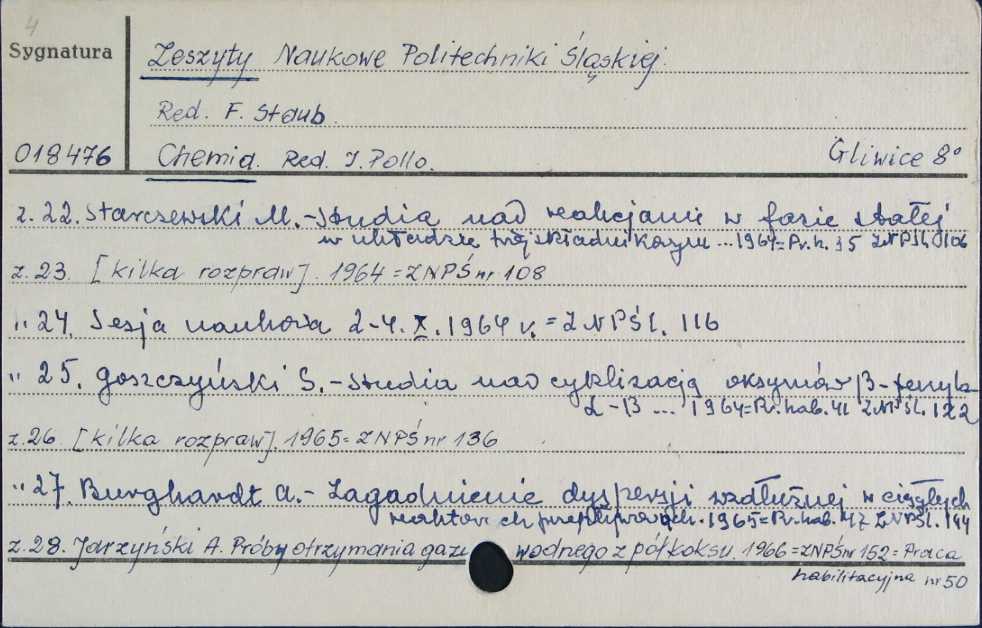 4
Sygnatura
Zeszyty Naukowe Politechniki Śląskiej.
Red. F. Staub
018476 Chemia. Red. J. Pollo. Gliwice 8°
z. 22. Starczewski M. - Studia nad reakcjami w fazie stałej
w układzie trójskładnikowym ... 1964 = Pr. h. 35 ZNPŚl. 106
z. 23. [kilka rozpraw]. 1964 = ZNPŚ nr 108
" 24. Sesja naukowa 2-4. X. 1964 r. = ZNPŚl. 116
" 25. Goszczyński S. - Studia nad cyklizacją oksymów β-fenylo
α-β ... 1964 = Pr. hab. 41 ZNPŚl. 122
z. 26. [kilka rozpraw]. 1965 = ZNPŚ nr 136
" 27. Burghardt A. - Zagadnienie dyspersji wzdłużnej w ciągłych
reaktorach przepływowych. 1965 = Pr. hab. 47 ZNPŚl. 144
z. 28. Jarzyński A. Próby otrzymania gazu wodnego z półkoksu. 1966 = ZNPŚ nr 152 = Praca
habilitacyjna nr 50